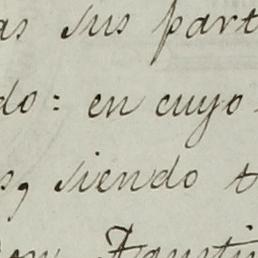 as sus part
do: en cuyo
s, siendo t
Don Agustin